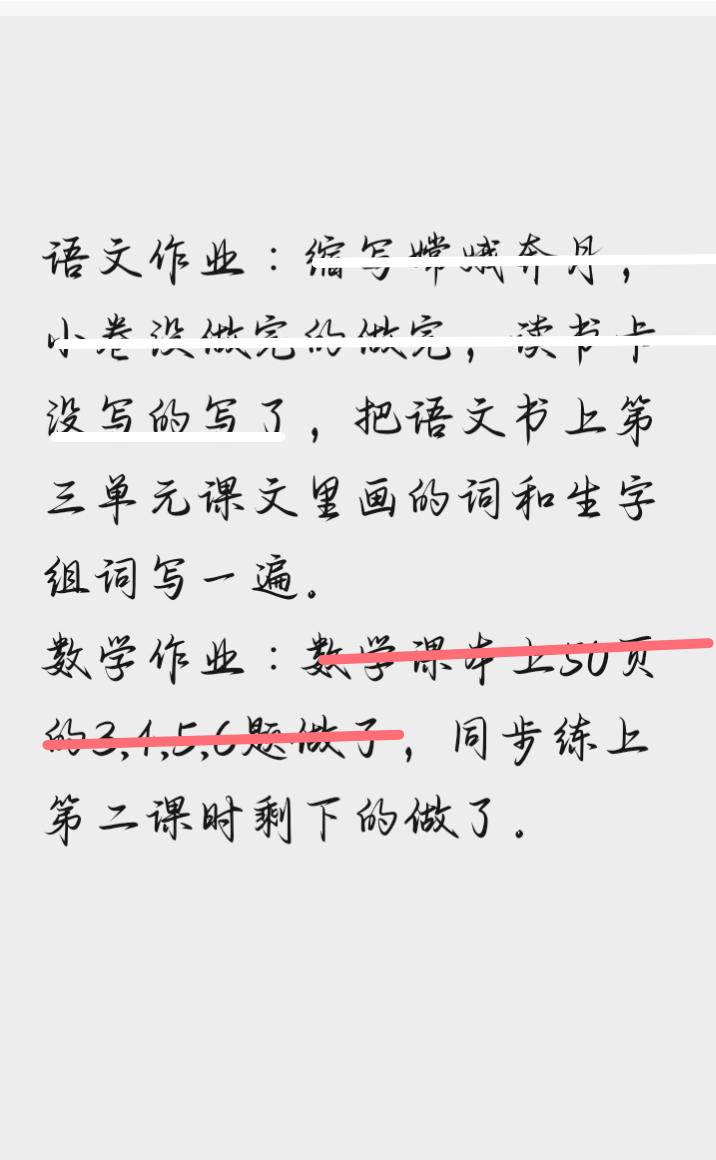 语文作业：缩写嫦娥奔月，
小卷没做完的做完，读书卡
没写的写了，把语文书上第
三单元课文里画的词和生字
组词写一遍。
数学作业：数学课本上50页
的3,4,5,6题做了，同步练上
第二课时剩下的做了。